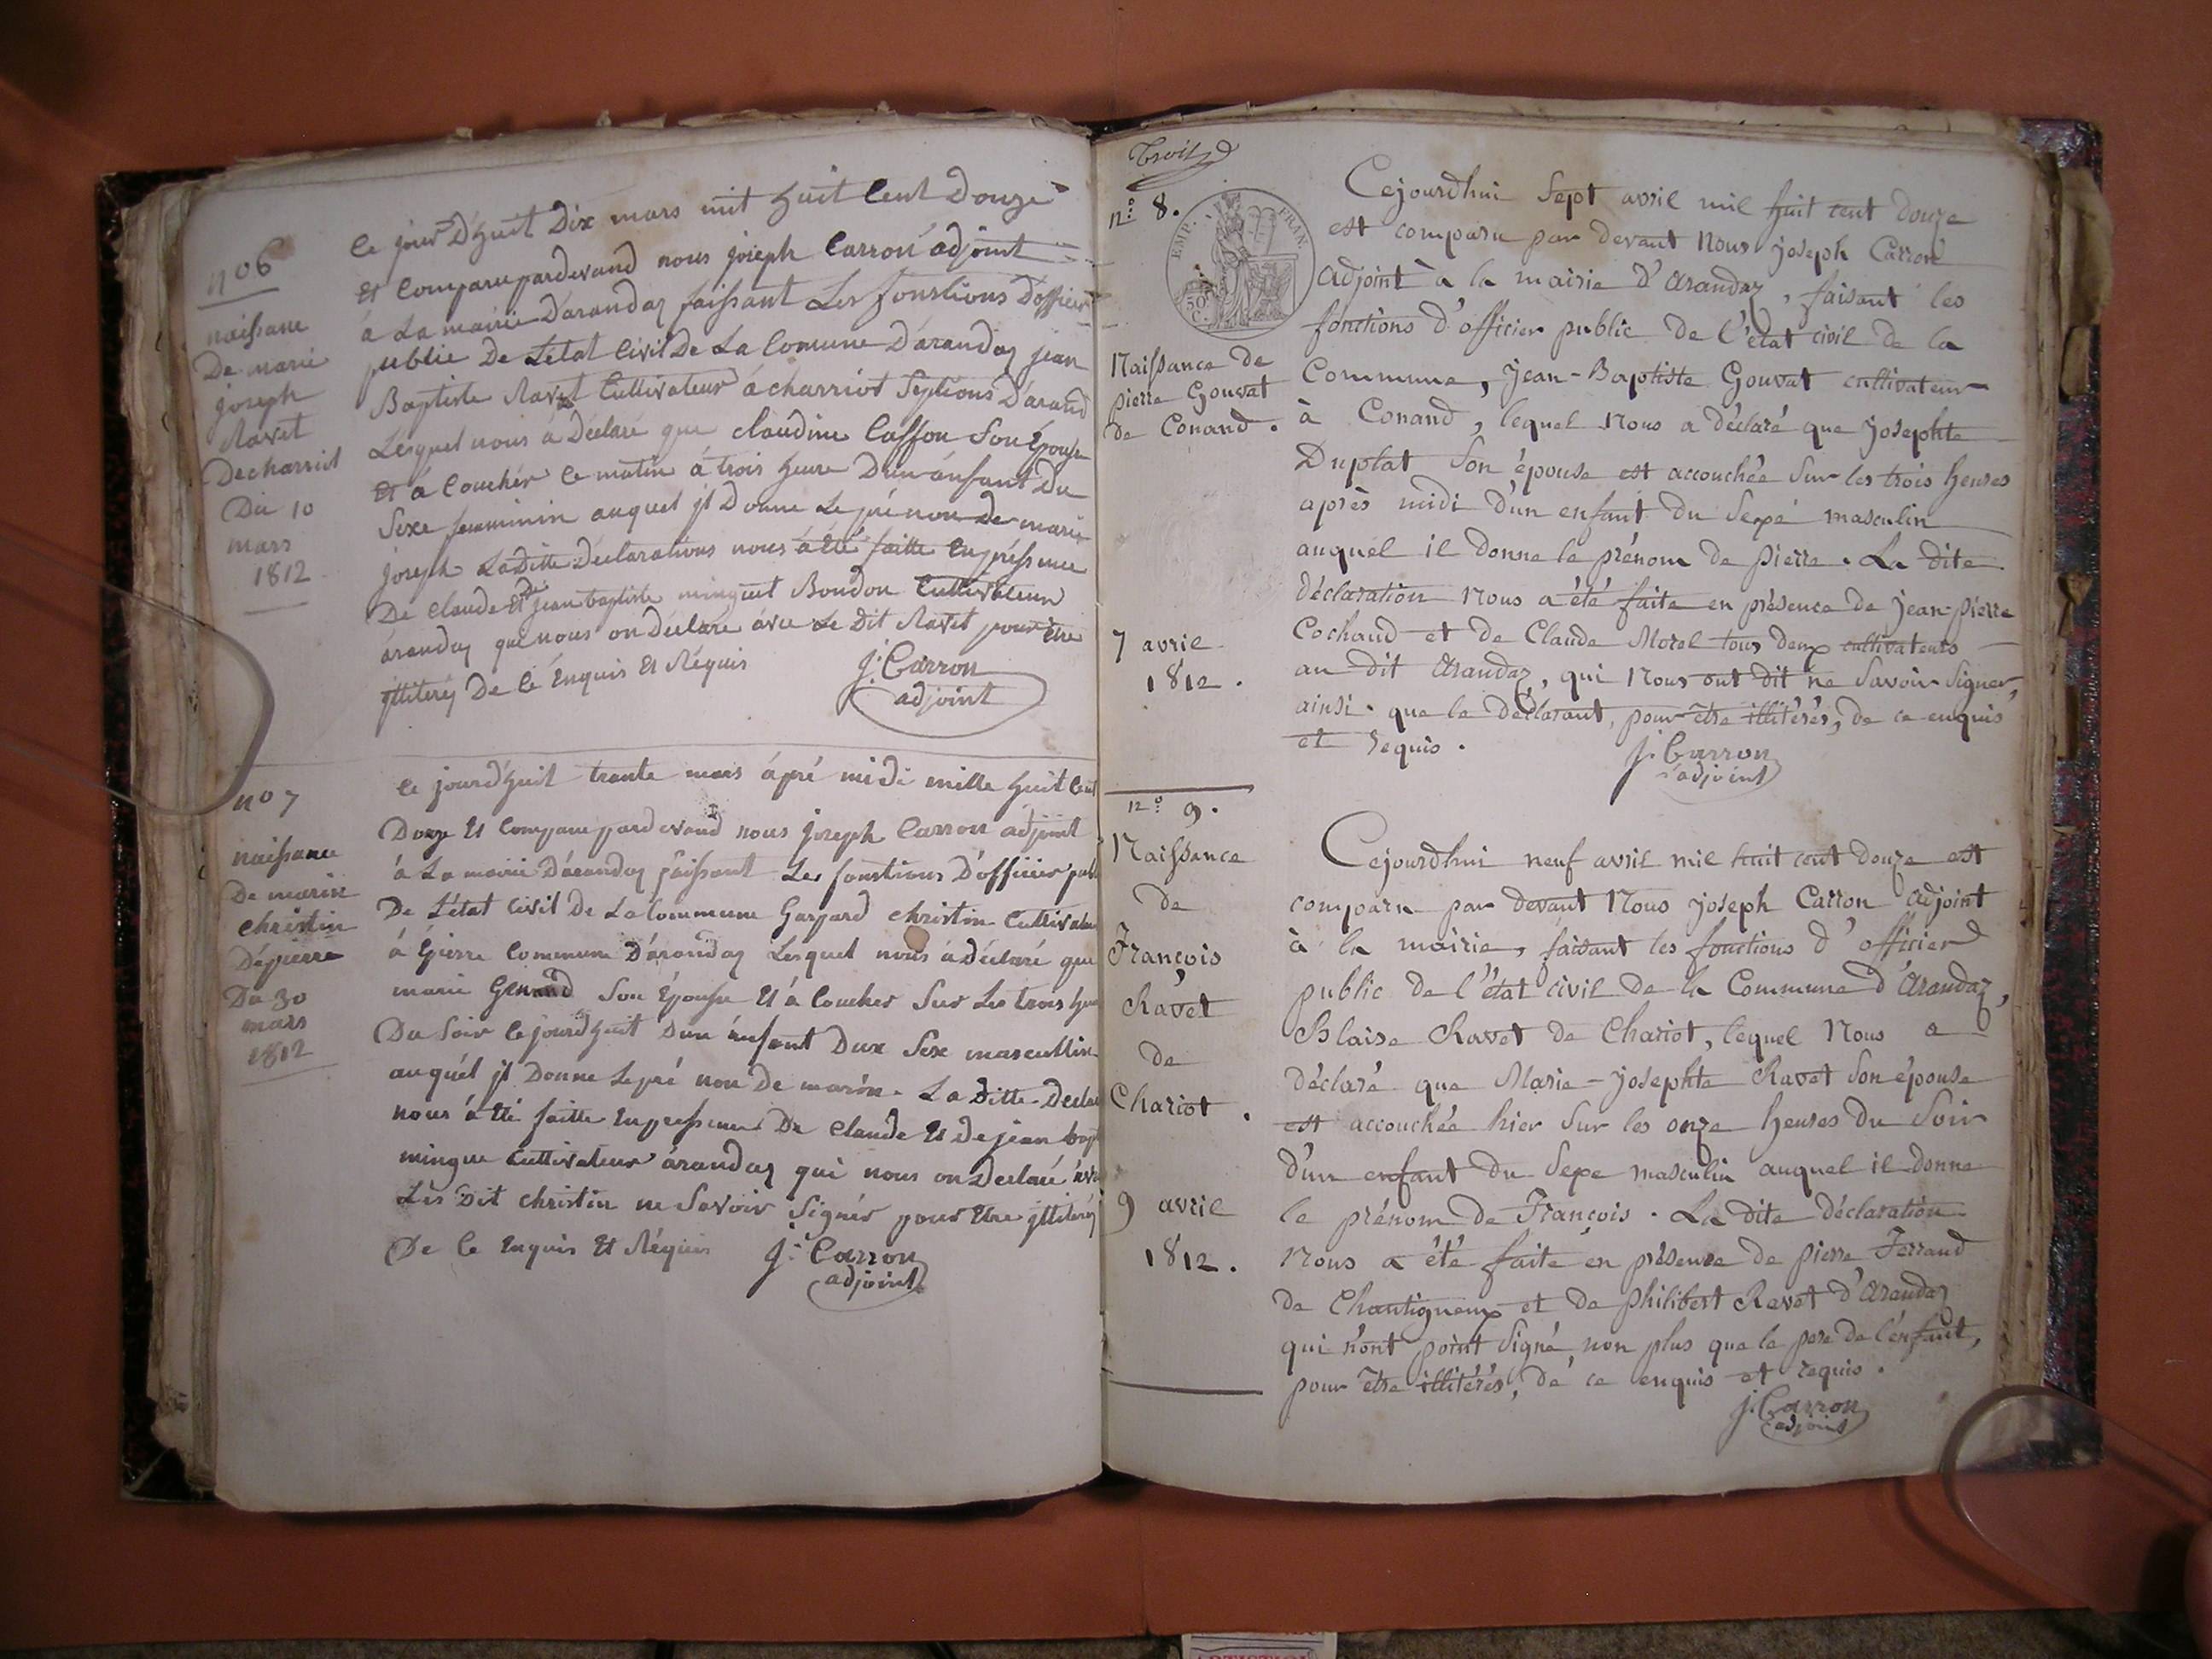 n° 6
naissance
De marie
joseph
Ravet
De charriot
Du 10
mars
1812
Ce jour D'huit Dix mars mil huit Cent Douze
Et Comparu pardevand nous joseph Carron adjoint
à La mairie D'arandaz faissant Les fonstions D'officier
public De L'état Civil De La Comune D'arandaz jean
Baptiste Ravet Cultivateur à charriot Septions D'arand
Lesquel nous à Déclaré que claudine Caffon Son Epouse
Et à Couchér Ce matin à trois heure D'un énfant Du
Sexe feminin auquel jl Donne Le pré nom De marie
joseph La Ditte Déclarations nous à été faitte En préssence
De Claude Et De jean baptiste minguet Boudon Cultivateur
árandaz qui nous on Déclaré ávec Le Dit Ravet pour être
jlliteréz De Cé Enquis Et Réquis
J. Carron
adjoint
n° 7
naissance
De marin
christin
Dépierre
Du 30
mars
1812
Ce jourd'huit trante mars ápré midi mille huit Cent
Douze Et Comparu pardevand nous joseph Carron adjoint
à La mairie D'arandaz faissant Les fonstions D'officier publ
De L'état Civil De La Commune Gaspard christin Cultivateu
à Épierre Commune D'arandaz Lesquel nous à déclaré que
marie Son Épouse Et à Coucher Sur Les trois heu
Du Soir Ce jourd'huit D'un énfant Dux Sexe mascullin
auquél jl Donne Le pré non De marin. La Ditte Decla
nous à été faitte En pressence De Claude Et De jean bapt
mingue Cultivateur árandaz qui nous on Declaré áve
Les Dit christin ne Savoir Signér pour Etre jlliteréz
De Ce Enquis Et Réquis
J. Carron
adjoint
Trois
n° 8.
EMP. FRAN.
50 C.
Naissance de
pierre Gouvat
de Conand.
7 avril
1812.
Cejourdhui Sept avril mil huit cent douze
est comparu par devant Nous joseph Carron
adjoint à la mairie d'Arandaz, faisant les
fonctions d'officier public de l'état civil de la
Commune, Jean-Baptiste Gouvat cultivateur
à Conand, lequel Nous a déclaré que josephte
Duplat Son épouse est accouchée Sur les trois heures
après midi d'un enfant du Sexe masculin
auquel il donne le prénom de Pierre. La dite
déclaration Nous a été faite en présence de jean-pierre
Cochaud et de Claude Morel tous deux cultivateurs
au dit Arandaz, qui Nous ont dit ne Savoir Signer,
ainsi que le déclarant, pour être illitérés, de ce enquis
et requis.
J. Carron
adjoint
n° 9.
Naissance
de
François
Ravet
de
Chariot.
9 avril
1812.
Cejourdhui neuf avril mil huit cent douze est
comparu par devant Nous joseph Carron adjoint
à la mairie, faisant les fonctions d'officier
public de l'état civil de la Commune d'Arandaz,
Blaise Ravet de Chariot, lequel Nous a
déclaré que Marie-josephte Ravet Son épouse
est accouchée hier Sur les onze heures du Soir
d'un enfant du Sexe masculin auquel il donne
le prénom de François. La dite déclaration
Nous a été faite en présence de pierre Ferrand
de Chantigneux et de philibert Ravet d'Arandaz
qui n'ont point Signé, non plus que le pere de l'enfant,
pour être illitérés, de ce enquis et requis.
J. Carron
adjoint